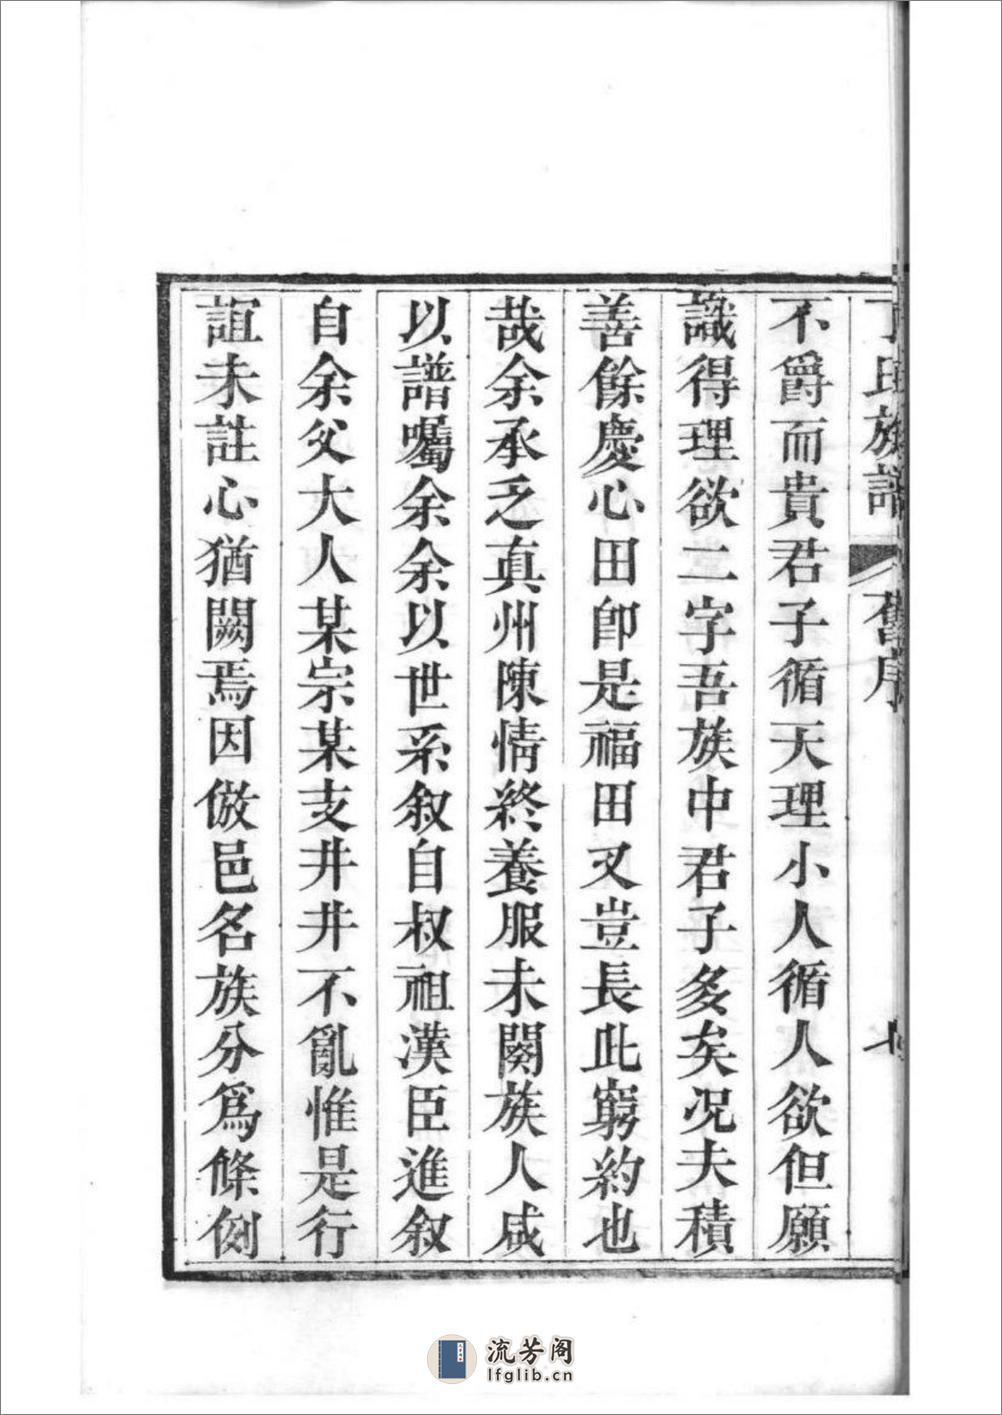 丁氏族譜 舊序
不爵而貴君子循天理小人循人欲但願
識得理欲二字吾族中君子多矣况夫積
善餘慶心田卽是福田又豈長此窮約也
哉余承乏真州陳情終養服未闋族人咸
以譜囑余余以世系叙自叔祖漢臣進叙
自余父大人某宗某支井井不亂惟是行
誼未註心猶闕焉因倣邑名族分爲條例
流芳阁
lfglib.cn